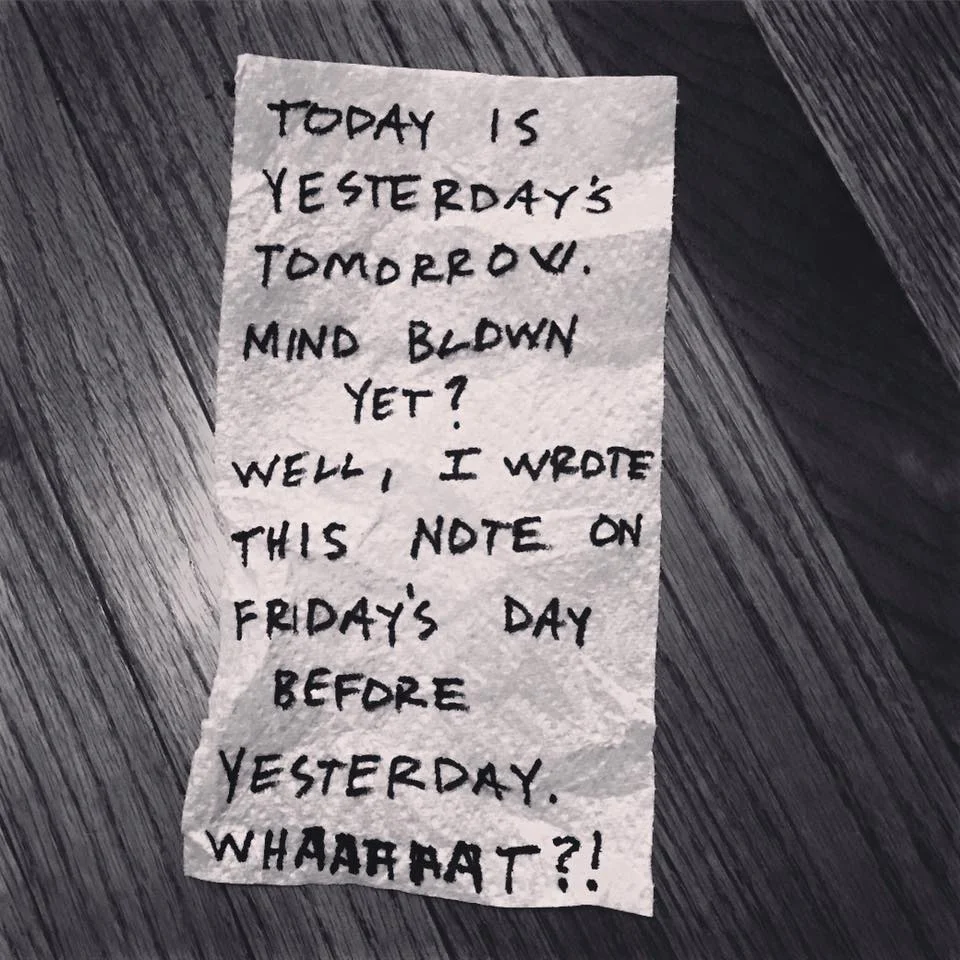 TODAY IS
YESTERDAY'S
TOMORROW.
MIND BLOWN
YET?
WELL, I WROTE
THIS NOTE ON
FRIDAY'S DAY
BEFORE
YESTERDAY.
WHAAAAAT?!